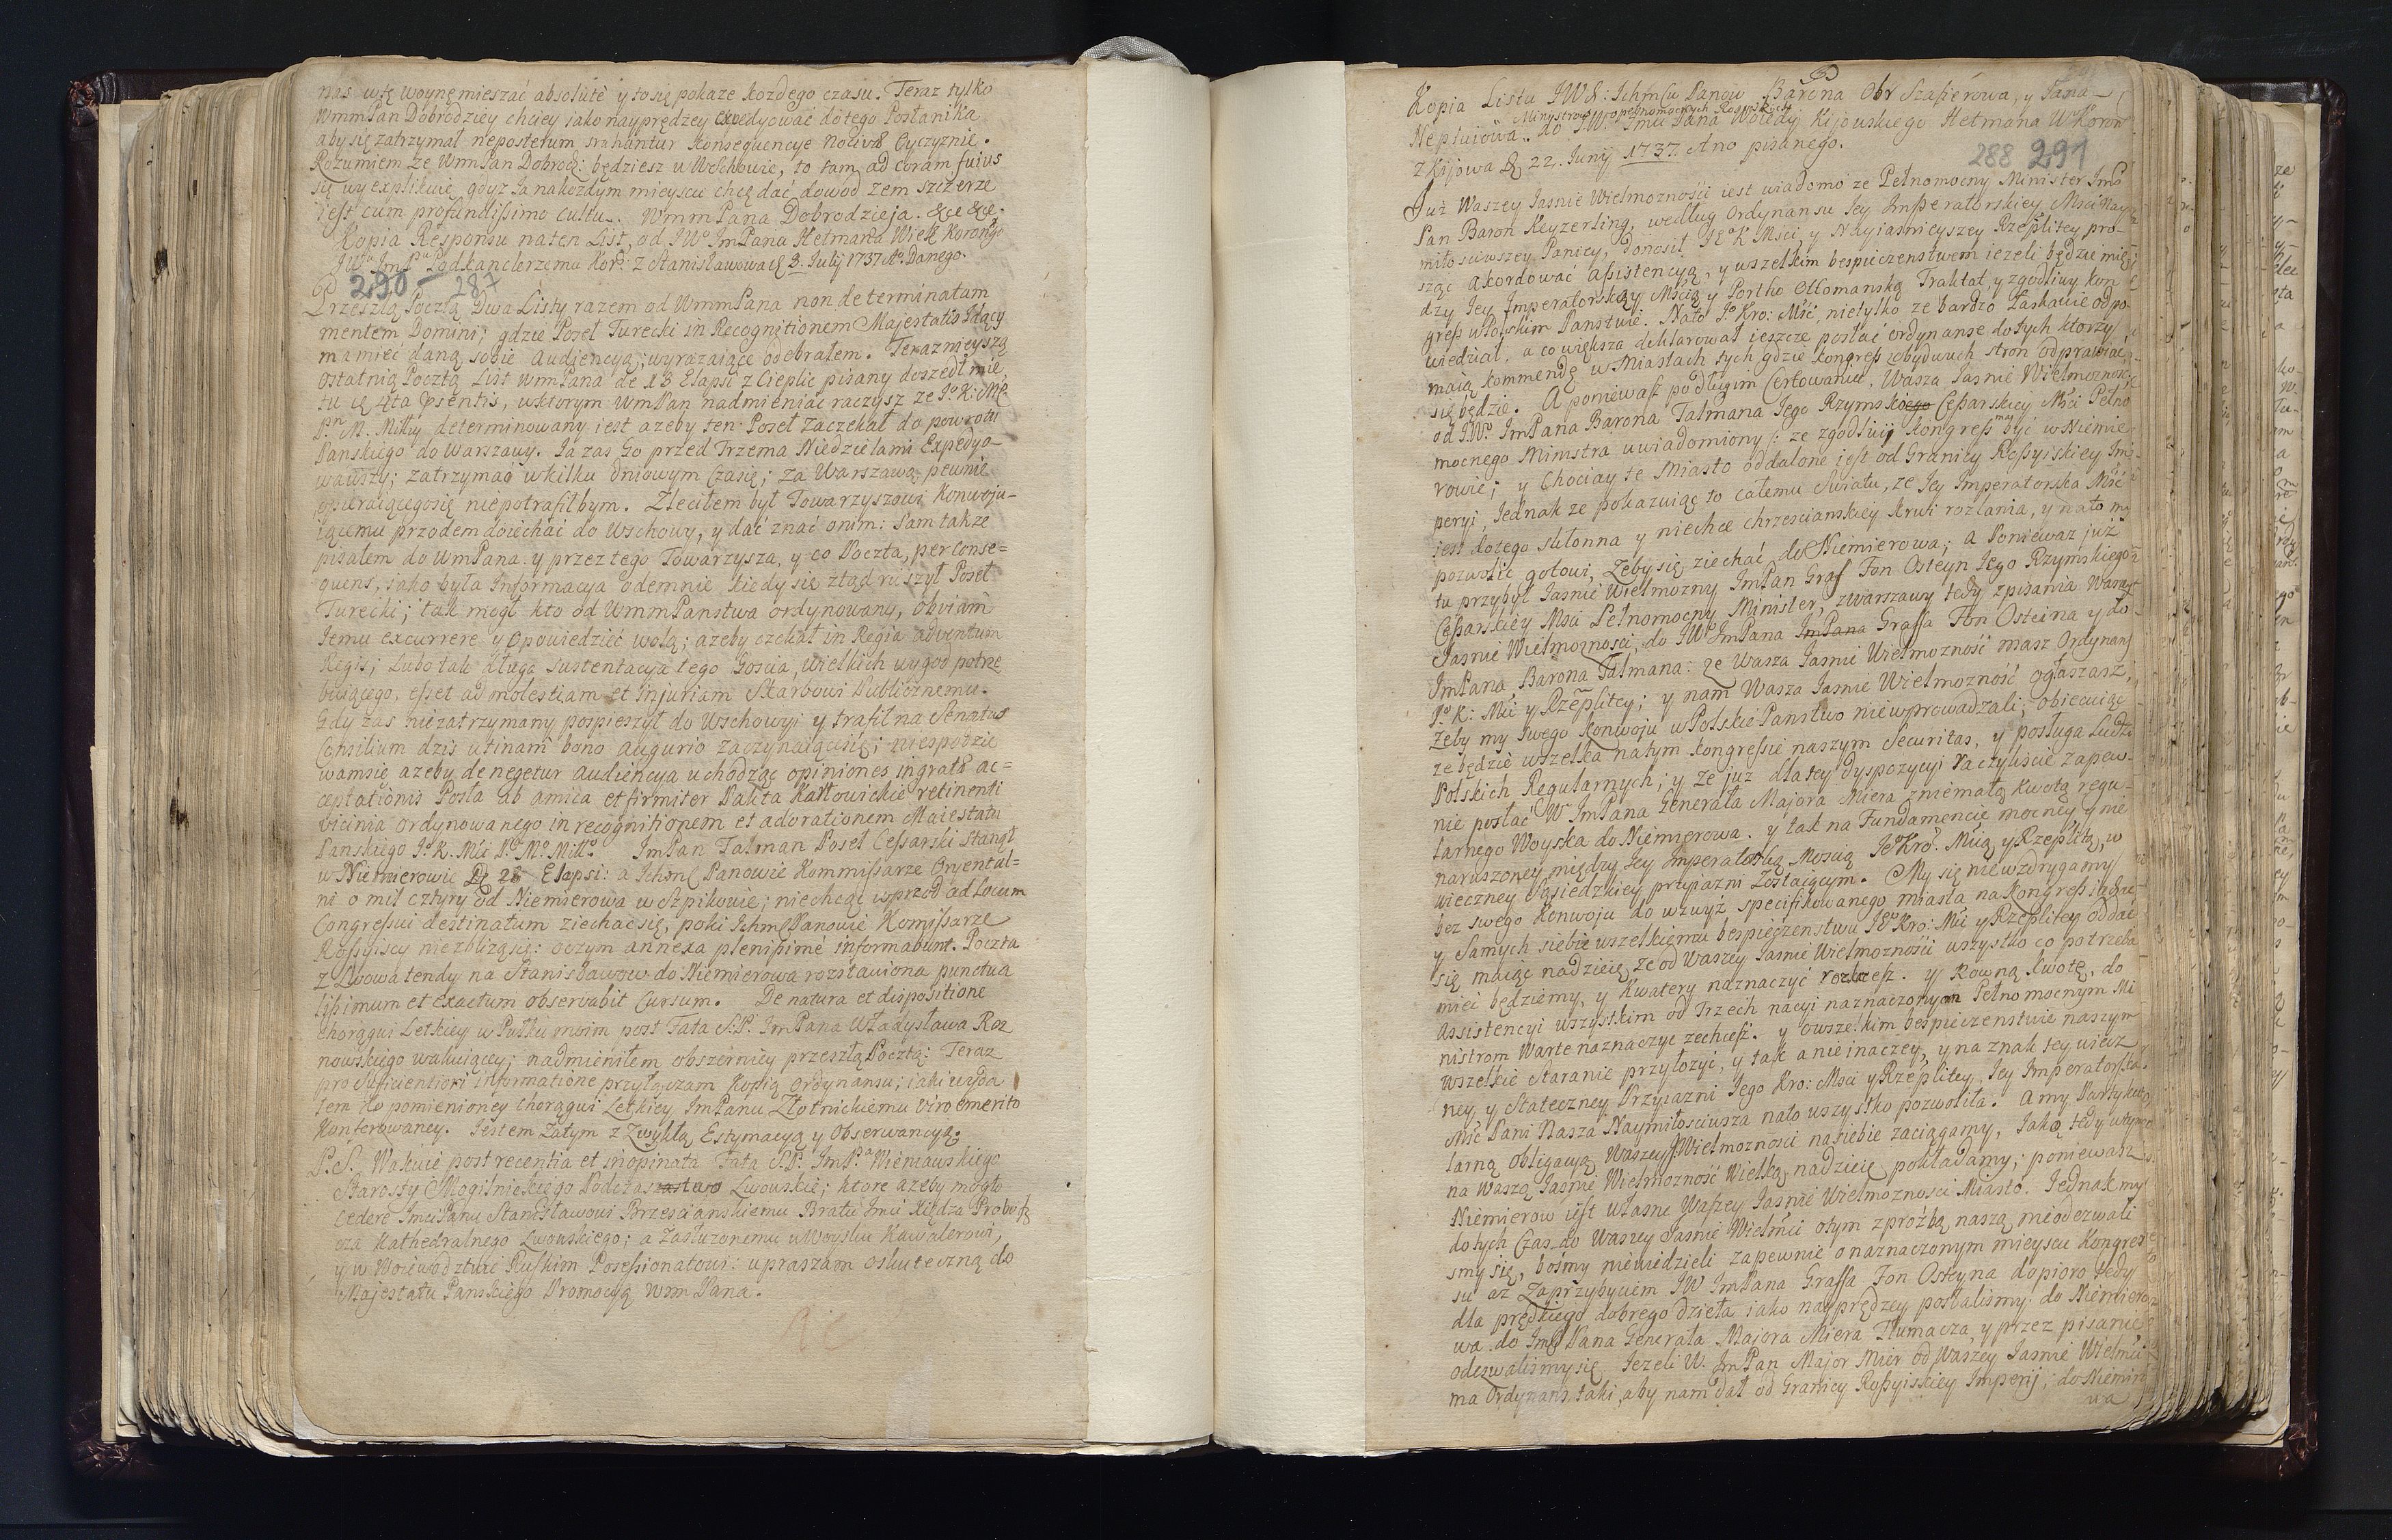 nas w tę woynę mieszać absolutè y to się pokaze kozdego czasu. Teraz tylko
WmmPan Dobrodziey chciey iako nayprędzey expedyować do tego Posłanika
aby się zatrzymał ne posterum trahantur konsequencye nociva Oyczyznie.
Rozumiem ze WmPan Dobrodz: będziesz u Wschowie, to tam ad coram fusius
się wyexplikuię, gdyz ia na kozdym mieyscu chcę dać dowod zem szczerze
iest cum profundissimo cultu. WmmPana Dobrodzieja. &ce &ce.
Kopia Responsu na ten List, od JWo ImPana Hetmana Wielk Korongo
JWu ImPu Podkanclerzemu Kor: z Stanisławowa D 8. Julij 1737 Ao Danego.
290 287
Przeszłą Pocztą Dwa Listy razem od WmmPana non determinatam
mentem Domini; gdzie Poseł Turecki in Recognitionem Majestatis Idący
ma mieć daną sobie Audjencyą; wyrazaiące odebrałem. Teraznieyszą
ostatnią Pocztą List WmPana de 13 Elapsi z Cieplic pisany doszedł mię
tu D 4ta psentis, w ktorym WmPan nadmieniać raczysz ze Jo K: Mć
Pn M. Miłły determinowany iest azeby ten Poseł zaczekał do powrotu
Panskiego do Warszawy. Ia zas Go przed Trzema Niedzielami Expedyo-
wawszy; zatrzymać w kilku dniowym Czasię; za Warszawą pewnie
opieraiącego się niepotrafiłbym. Zleciłem był Towarzyszowi Konwoju-
iącemu przodem doiechać do Wschowy, y dać znać o nim: Sam takze
pisałem do WmPana y przez tego Towarzysza, y co Poczta, per conse=
quens, iako była Informacya odemnie kiedy się ztąd ruszył Poseł
Turecki; tak mogł kto od WmmPanstwa ordynowany, obviam
Jemu excurrere y opowiedzieć wolą; azeby czekał in Regia adventum
Regis; Lubo tak długa sustentacya tego Goscia, wielkich wygod potrze
buiącego, esset ad molestiam et Injuriam Skarbowi Publicznemu.
Gdy zas niezatrzymany pospieszył do Wschowyi y trafił na Senatus
Consilium dzis utinam bono augurio zaczynaiące się; niespodzie
wam się azeby denegetur audiencya uchodząc opiniones ingratæ ac=
ceptationis Posła ab amica et firmiter Pakta Karłowickie retinenti
vicinia ordynowanego in recognitionem et adorationem Maiestatu
Panskiego Jo K. Mći Pa Mo Miłło. ImPan Talman Poseł Cessarski stanął
w Niemierowie D 28 Elapsi: a Ichmć Panowie Kommissarze Oryental=
ni o mil cztyry od Niemierowa w Szpikowie; niechcąc wprzod ad Locum
Congressui destinatum ziechac się, poki Ichmć Panowie Komissarze
Rossyiscy niezbliząsię: oczym annexa plenissimè informabunt. Poczta
z Lwowa tendy na Stanisławow do Niemierowa rozstawiona punctua
lissimum et exactum observabit Cursum. De natura et dispositione
chorągwi Letkiey w Pułku moim post Fata S.P. ImPana Władysława Roz
nowskiego wakuiącey; nadmieniłem obszerniey przeszłą Pocztą: Teraz
pro suficientiori informatione przyłączam kopią ordynansu; iaki wyda
łem do pomienioney chorągwi Letkiey, ImPanu Złotnickiemu viro emerito
Konferowaney. Iestem zatym z Zwykłą Estymacyą y Obserwancyą.
P.S. Wakuie post recentia et inopinata Fata S.P. ImPa Wieniawskiego
Starosty Mogilnickiego Podczastwo Lwowskie; ktore azeby mogło
cedere ImciPanu Stanisławowi Brzescianskiemu Bratu Imci Xiędza Probosz
cza Kathedralnego Lwowskiego; a zasłuzonemu u Woysku Kawalerowi,
y w Woiewodztwie Ruskim Possessionatowi: upraszam oskuteczną do
Majestatu Panskiego Promocyą WmPana.
Kopia Listu JWW: Ichmćiu Panow Barona Obr Szafierowa, y Pana
Ministrow Pełnomocnych Rossyiskich
Nepluiowa. do JWo Imci Pana Woiedy Kijowskiego Hetmana WKoron
z Kijowa D 22. Junij 1737. Ano pisanego.
288 291
Juz Waszey Jasnie Wielmoznośći iest wiadomo ze Pełnomocny Minister Imć
Pan Baron Keyzerling, według Ordynansu Jey Imperatorskiey Mśći Nay
miłosciwszey Paniey, donosił Jo K Mśći, y Nayiasnieyszey Rzeplitey pro-
sząc akordować assistencyą, y wszelkim bespieczenstwem iezeli będzie mię
dzy Jey Imperatorską Mścią y Portho Ottomanską Traktat, y zgodliwy kon
gress w Polskim Panstwie. Nato Jo Kro: Mść, nietylko ze bardzo Łaskawie odpo
wiedział, a co większa deklarował ieszcze posłać ordynanse do tych ktorzy
maią kommendę w Miastach tych gdzie kongress zobydwuch stron odprawiać
się będzie. A poniewasz po długim Certowaniu, Wasza Jasnie Wielmoznosc
od JWo ImPana Barona Talmana Jego Rzymskiego Cessarskiey Mśći Pełno
mocnego Ministra uwiadomiony: ze zgodliwy kongress ma być w Niemie
rowie; y Chociay te Miasto oddalone iest od Granicy Rossyiskiey Im
peryi, Jednak ze pokazuiąc to całemu Światu, ze Jey Imperatorska Mść
iest do tego skłonna y niechce chrzescianskiey krwi rozlania, y nato my
pozwolić gotowi, Zeby się ziechać do Niemierowa; a Poniewaz już
tu przybył Jasnie Wielmozny ImPan Graf Fon Osteyn Jego Rzymskiego
Cessarskiey Mśći Pełnomocny Minister, z warszawy tedy z pisania Waszey
Jasnie Wielmoznosci, do JWo ImPana ImPana Graffa Fon Osteina y do
ImPana Barona Talmana: ze Wasza Jasnie Wielmozność masz Ordynans
Jo K: Mći y Rzeplitey; y nam Wasza Jasnie Wielmozność ogłaszasz,
Żeby my swego konwoju w Polskie Panstwo niewprowadzali; obiecuiąc
ze będzie wszelka na tym kongressie naszym Securitas, y posługa Ludzi
Polskich Regularnych; y ze juz dla tey dyspozycyi raczyliscie zapew-
nie posłać W ImPana Generała Majora Miera zniemałą kwotą regu-
larnego Woyska do Niemierowa. y tak na Fundamencie mocney y nie
naruszoney między Jey Imperatorską Mością Jo Kro: Mcią y Rzeplitą, w
wieczney Sąsiedzkiey przyjazni Zostaiącym. My się niewzdrygamy
bez swego Konwoju do wzwyż specifikowanego miasta na kongress iechać
y samych siebie wszelkiemu bespieczenstwu Jo Kro: Mći y Rzeplitey oddać
się maiąc nadzieię, ze od Waszey Jasnie Wielmoznośći wszystko co potrzeba
mieć będziemy, y Kwatery naznaczyć rozkazesz. y Rowną kwotę, do
Assistencyi wszystkim od Trzech nacyi naznaczonym Pełnomocnym Mi
nistrom Warte naznaczyc zechcesz. y owszelkim bespieczenstwie naszym
wszelkie staranie przyłozyć, y tak a nie inaczey, y na znak tey wiecz
ney y Stateczney Przyiazni Jego Kro: Mśći y Rzeplitey, Jey Imperatorska
Mść Pani Nasza Naymiłosciwsza nato wszystko pozwoliła. A my Partyku
larną obligacyą Waszey Wielmoznosci nasiebie zaciągamy, Jako tedy
na Waszą Jasnie Wielmozność Wielką nadzieię pokładamy; poniewasz
Niemierow iest własne Waszey Jasnie Wielmoznosci Miasto. Jednak my
do tych Czas do Waszey Jasnie Wielmci otym zprozbą naszą nieodezwali
smy się, bosmy niewiedzieli zapewnie o naznaczonym mieyscu Kongres
su az Zaprzybyciem JW ImPana Graffa Fon Osteyna dopioro tedy
dla prędkiego dobrego dzieła iako nayprędzey posłalismy do Niemiero
wa do Imć Pana Generała Majora Miera Tłumacza, y przez pisanie
odezwalismy się Jezeli W. ImPan Major Mier od Waszey Jasnie Wielmci
ma Ordynans taki, aby nam dał od Granicy Rossyiskiey Imperij, do Niemiro
wa